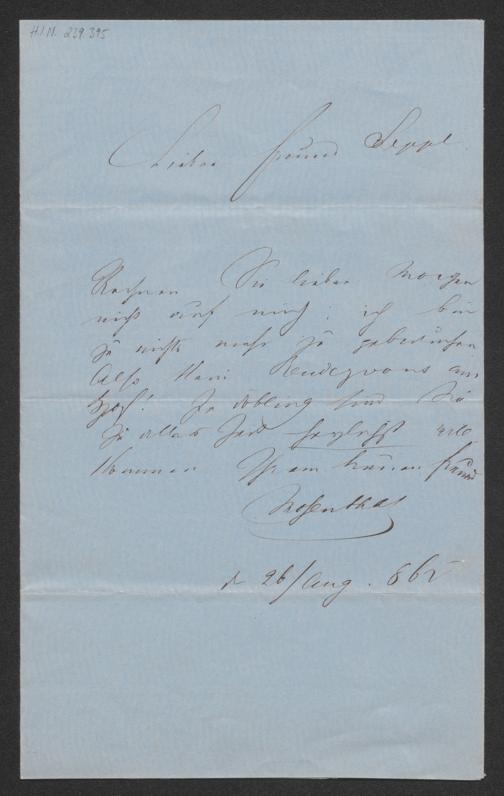 H.I.N. 239.395
Lieber Freund Seppl.
Rechnen Sie lieber Morgen
nicht auf mich; ich bin
zu nichts mehr zu gebrauchen
Also kein Rendezvous am
Hof! In Döbling sind Sie
zu aller Zeit herzlichst will
kommen Ihrem treuen Freund
Mosenthal
d 26/Aug. 865